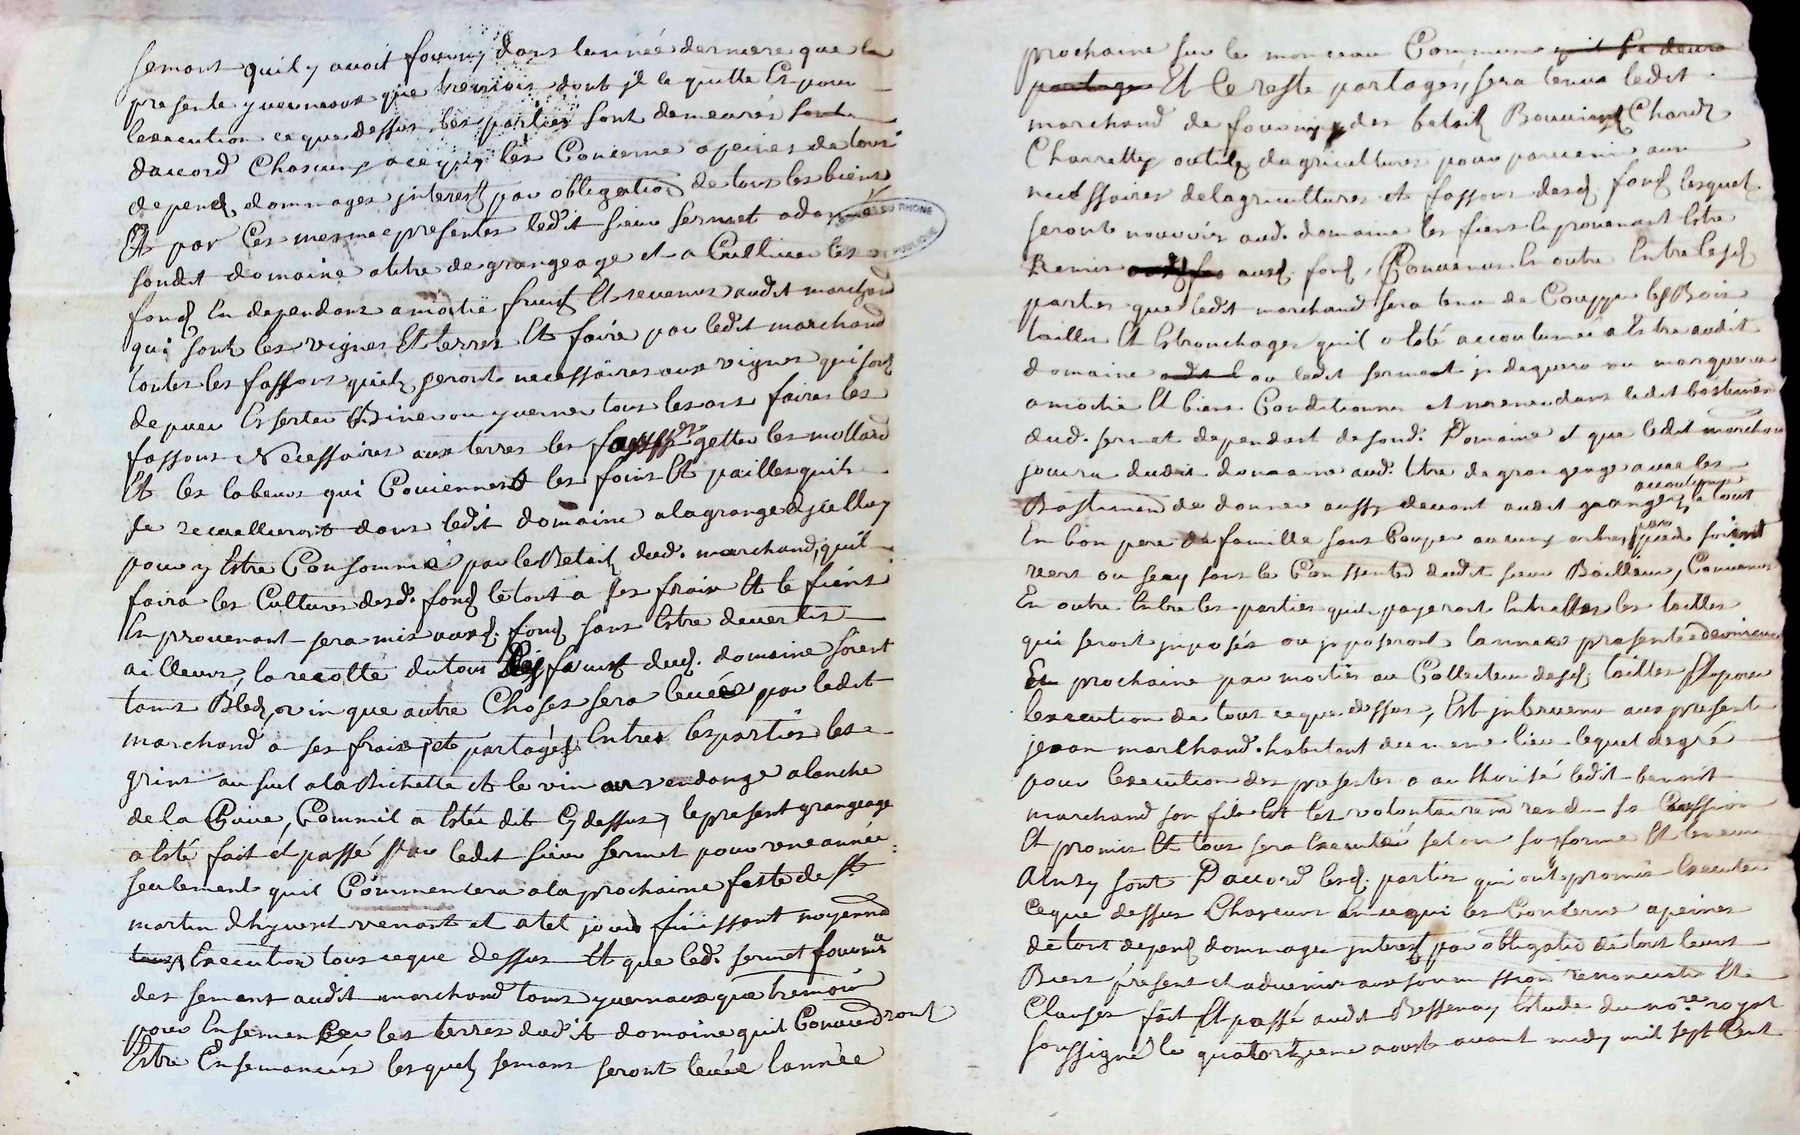 semans quil y avoit fourny dans lannée derniere que la
presente yvernaux que tremois dont jl le quitte Et pour
lexecution ce que dessus les parties sont demeurés
daccord Chascung a ce qui les Concerne a peines de tous
depend dommages jnterest par obligation de tous les biens
Et par Ces mesme presentes ledit sieur sermet a donné
sondit domaine a titre de grangeage et a Cultiver les
fond En dependans a moitié fruit Et revenus audit marchand
qui sont les vignes Et terres Et faire par ledit marchand
toutes les fassons quil seront necessaires aux vignes qui sont
de puer Esserter Biner ou yverner tous les ans faires les
fassons Necessaires aux terres les getter les mollard
Et les labeurs qui Conviennent les foins Et pailles quils
se recueilleront dans ledit domaine a la grange djcelluy
pour y Estre Consommé par le Betail dud. marchand, quil
faira les Cultures desd. fond le tout a ses frais Et le fiens
En provenant sera mis ausd. fond sans Estre divertis
ailleurs, la recolte du tous les fruit dud. domaine soient
tams Bled, vin que autre Choses sera levée par ledit
marchand a ses frais, et partagés Entres les parties les
grins au suel a la Bichette Et le vin ou vendange a lanche
de la Cuve, Comme il a Esté dit Cy dessus, le present grangeage
a Esté fait et passé par ledit sieur sermet pour une année
seulement quil Commencera a la prochaine feste de St
martin dhyvert venant et a tel jour finissant moyennant
Execution tous ce que dessus Et que led. sermet fournir
des semens audit marchand tams yvernaux que tremois
pour Ensemencer les terres dudit domaine quil Conviendront
Estre Ensemancés lesquel semans seront levée lannée
prochaine sur le monceau Commun quil se devra
partage Et le reste partagés, sera tenu ledit
marchand de fournir des betail Bouvier Chard
Charrette outil dagricultures pour parvenir aux
necessaires de lagricultures et fassons desd. fond lesquel
seront nourris aud. domaine les fiens En provenant Estre
Remis ausd. fond, Convenus En outre Entre lesd
parties que ledit marchand sera tenu de Coupper les Bois
tailles Et Ebronchages quil a Esté accoutumé a Estre audit
domaine ou ledit sermet jndiquera ou marquera
a moitié Et biens Conditionner et mener dans ledit bastimen
dud. sermet dependant de sond. Domaine et que ledit marchand
jouira dudit domaine aud. titre de grangeage avec les
Bastimens de donner aussy devant audit granger accoutumé le tout
En bon pere de famille sans Couper aucung arbres par pied soient
vers ou secq sans le Conssente dudit sieur Bailleur, Convenus
En outre Entre les parties quil payeront Entre les tailles
qui seront jmposés ou jmposeront lannée presente
Et prochaine par moitiés au Collecteur desd. tailles Et pour
lexecution de tous ce que dessus, Est jntervenu aux present
jean marchand habitant du meme lieu lequel de gré
pour lexecution des presentes a authorisé ledit benoit
marchand son fils Et sest volontairem rendu sa Caussion
Et promis Et tous sera Executé selon sa forme Et teneur
Ainsy sont Daccord lesd. parties qui ont promis Executer
ce que dessus Chascung En ce qui les Conserne a peines
de tous depend dommage jnterest par obligatio de tout leurs
Biens présent et advenir aux soumission renonciatio Et
Clauses fait Et passé audit Bessenay Estude du no.re royal
soussigné le quatorzieme aoust avant midy mil sept Cent